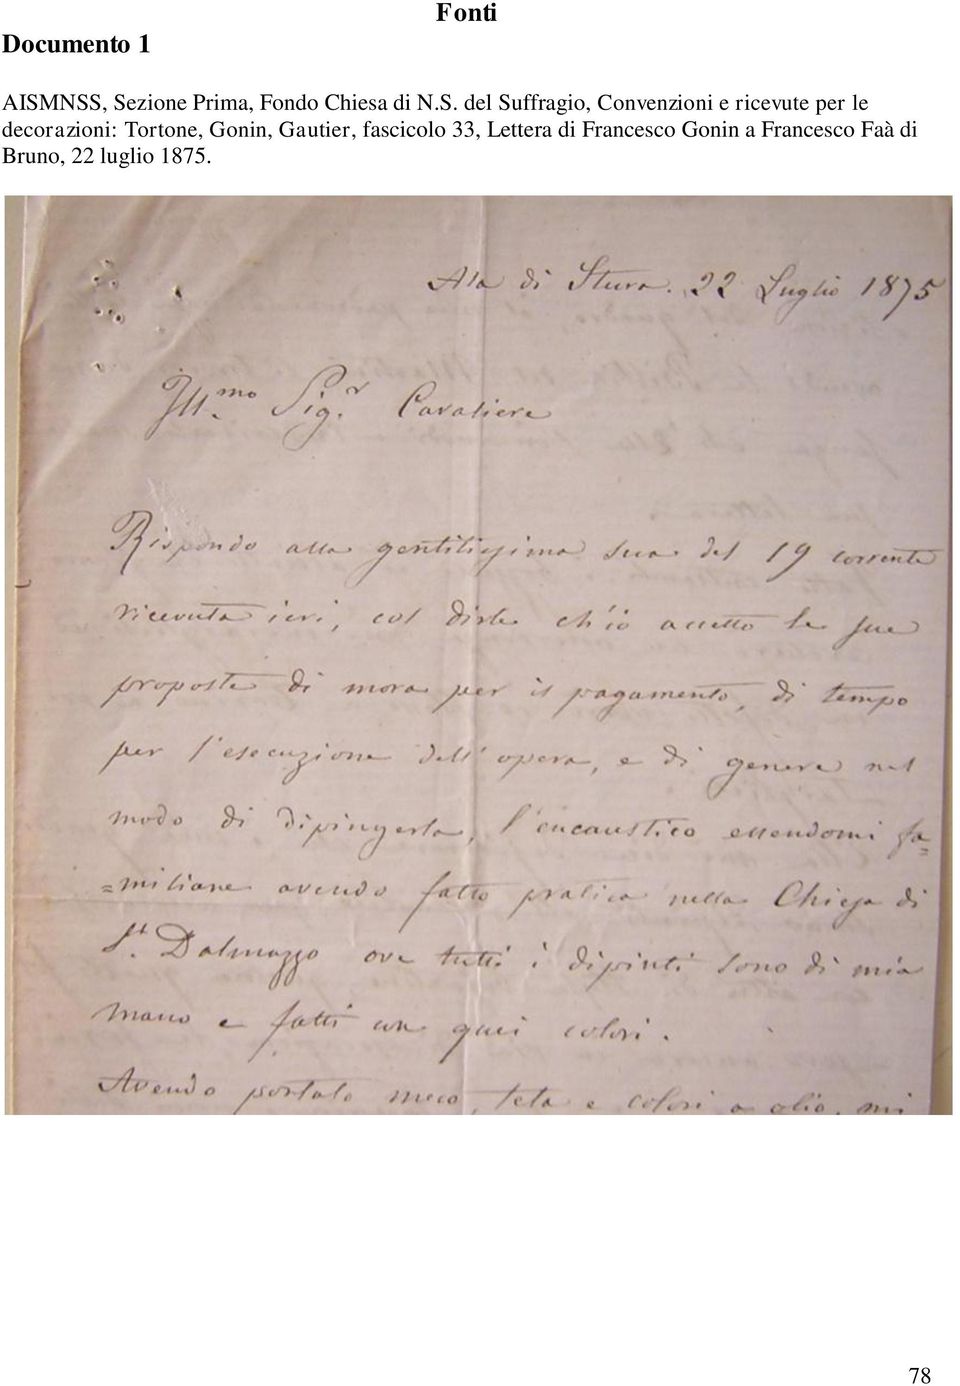 Fonti
Documento 1
AISMNSS, Sezione Prima, Fondo Chiesa di N.S. del Suffragio, Convenzioni e ricevute per le
decorazioni: Tortone, Gonin, Gautier, fascicolo 33, Lettera di Francesco Gonin a Francesco Faà di
Bruno, 22 luglio 1875.
Ala di Stura. 22 Luglio 1875
Ill.mo Sig.r Cavaliere
Rispondo alla gentilissima sua del 19 corrente
ricevuta ieri, col dirle ch'io accetto le sue
proposte di mora per il pagamento, di tempo
per l'esecuzione dell'opera, e di genere nel
modo di dipingerla, l'encaustico essendomi fa=
=miliare avendo fatto pratica nella Chiesa di
St. Dalmazzo ove tutti i dipinti sono di mia
mano e fatti con quei colori.
Avendo portato meco, tela e colori a olio, mi
78